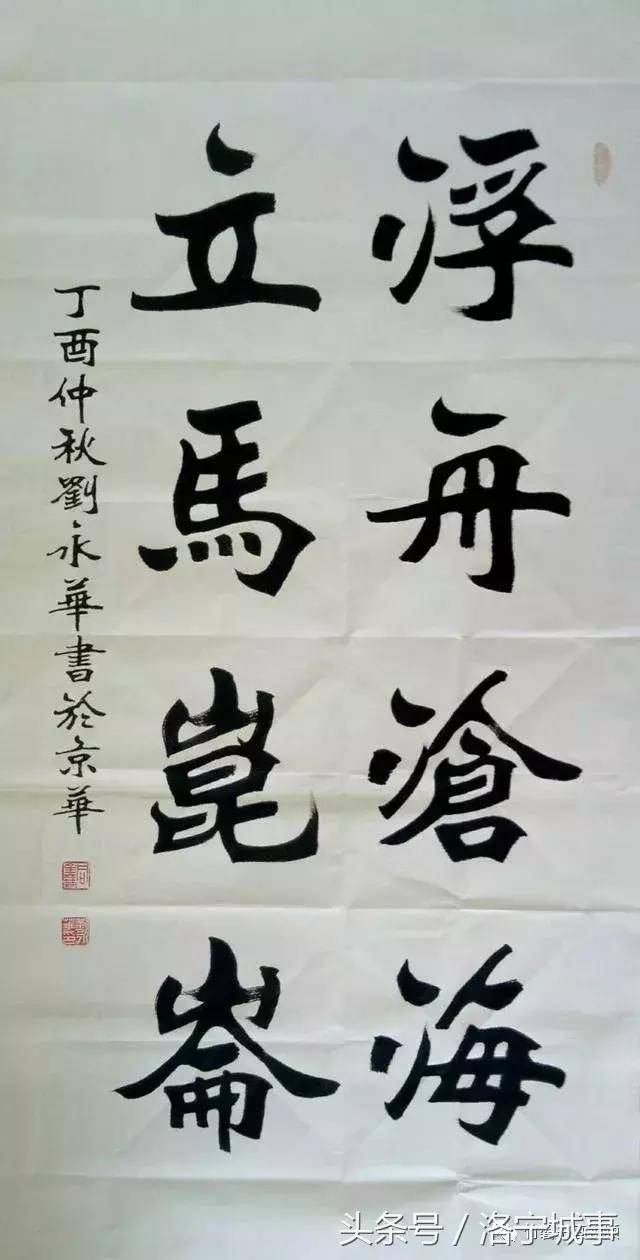 浮舟滄海
立馬崑崙
丁酉仲秋劉永華書於京華
头条号／洛宁城事